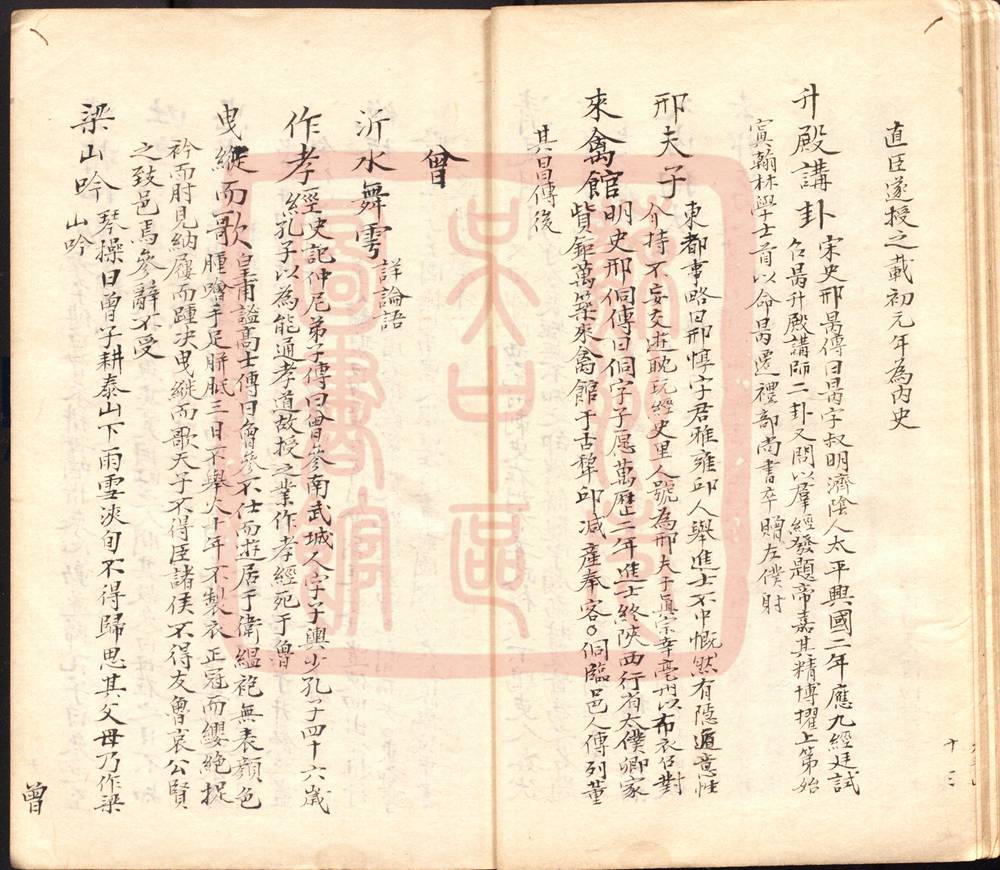 直臣遂授之載初元年為內史
升殿講卦
宋史邢昺傳曰昺字叔明濟陰人太平興國二年應九經廷試
召昺升殿講師二卦又問以羣經發題帝嘉其精博擢上第始
寘翰林學士首以命昺遷禮部尚書卒贈左僕射
邢夫子
東都事略曰邢惇字君雅雍邱人舉進士不中慨然有隱遁意性
介持不妄交遊耽玩經史里人號為邢夫子真宗幸亳州以布衣召對
來禽館
明史邢侗傳曰侗字子愿萬歷二年進士終陝西行省太僕卿家
貲鉅萬築來禽館于古犂邱減產奉客。侗臨邑人傳列董
其昌傳後
曾
沂水舞雩
詳論語
作孝經
史記仲尼弟子傳曰曾參南武城人字子輿少孔子四十六歲
孔子以為能通孝道故授之業作孝經死于魯
曳縰而歌
皇甫謐高士傳曰曾參不仕而遊居于衛緼袍無表顏色
腫噲手足胼胝三日不舉火十年不製衣正冠而纓絕捉
衿而肘見納履而踵決曳縰而歌天子不得臣諸侯不得友魯哀公賢
之致邑焉參辭不受
梁山吟
琴操曰曾子耕泰山下雨雪浹旬不得歸思其父母乃作梁
山吟
曾
十三